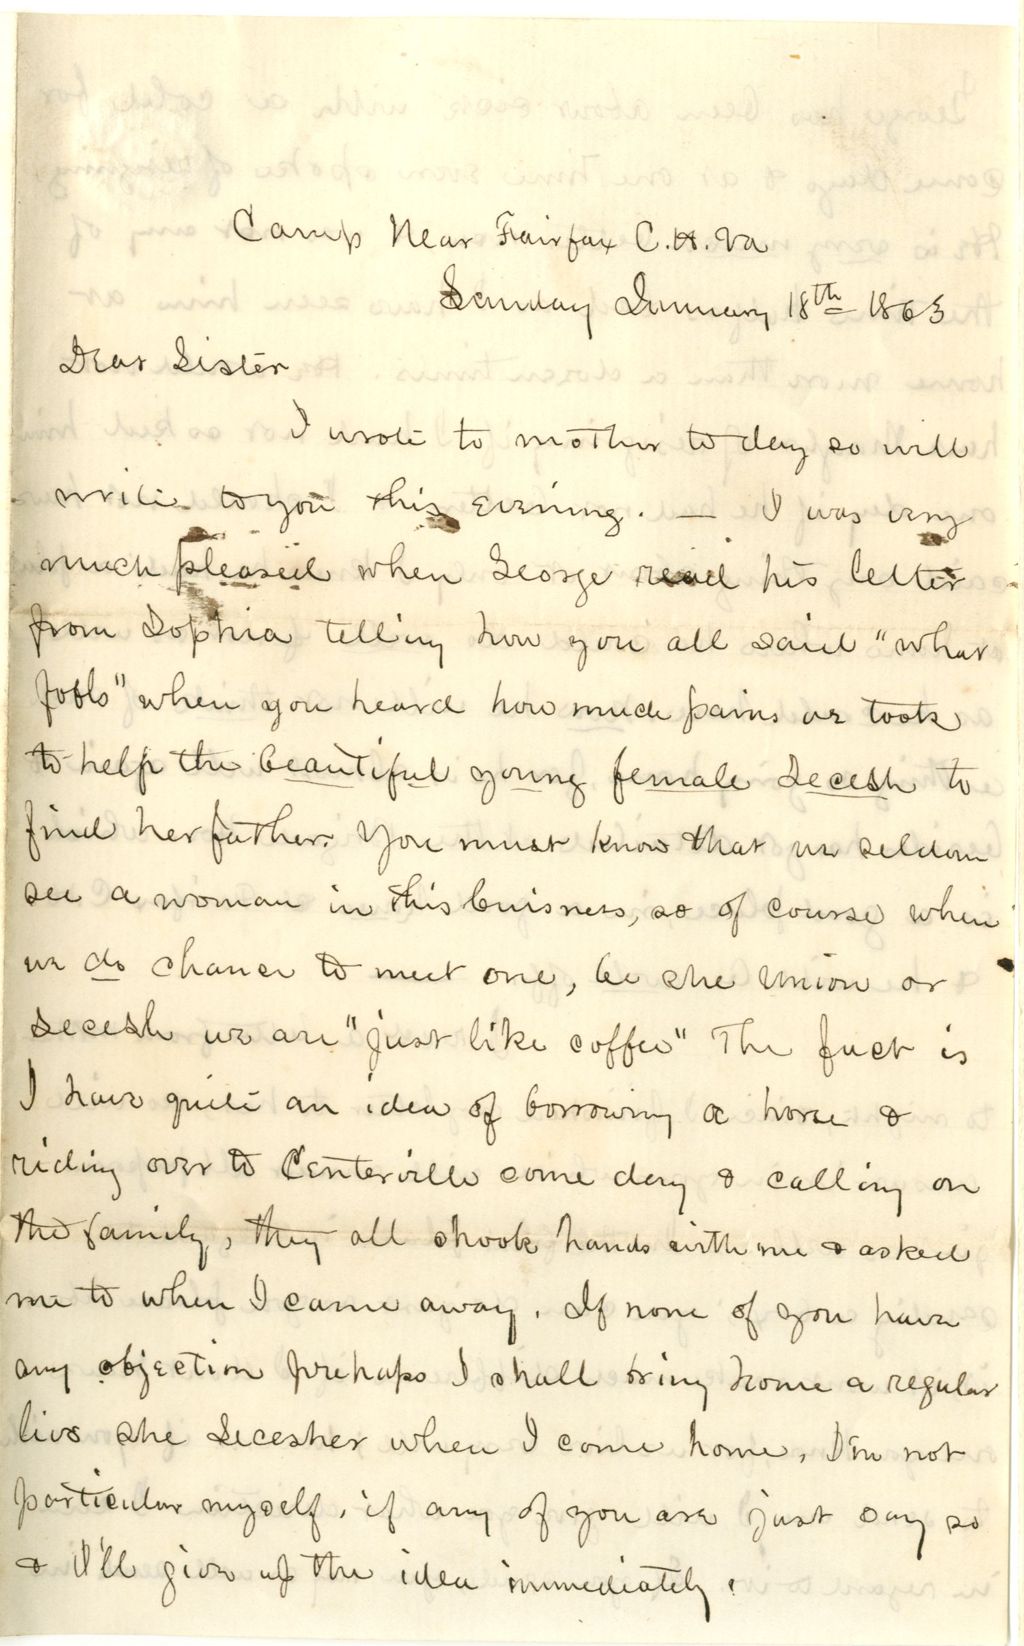 Camp Near Fairfax C.H. Va
Sunday January 18th 1863
Dear Sister
I wrote to mother to day so will
write to you this evening. — I was very
much pleased when George read his letter
from Sophia telling how you all said "what
fools" when you heard how much pains we took
to help the beautiful young female Secesh to
find her father. You must know that we seldom
see a woman in this buisness, so of course when
we do chance to meet one, be she Union or
secesh we are "just like coffee" The fact is
I have quite an idea of borrowing a horse &
riding over to Centerville some day & calling on
the family, they all shook hands with me & asked
me to when I came away. If none of you have
any objection prehaps I shall bring home a regular
live she Secesher when I come home, I'm not
particular myself, if any of you are just say so
& I'll give up the idea immediately.